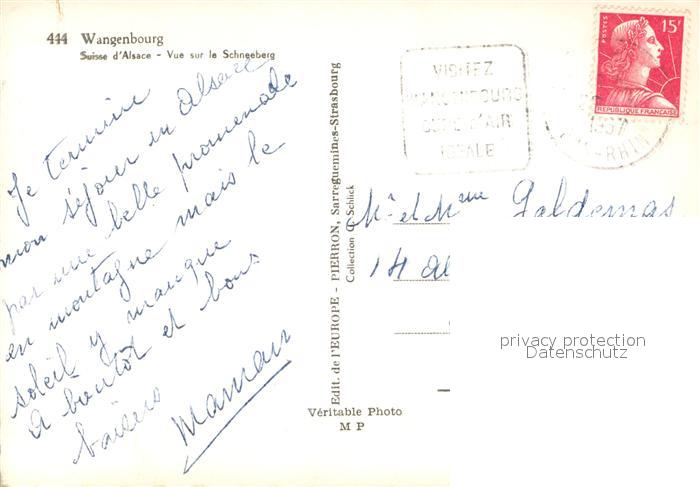 444 Wangenbourg
Suisse d'Alsace - Vue sur le Schneeberg
Je termine
mon séjour en Alsace
par une belle promenade
en montagne mais le
soleil y manque
A bientôt et bons
baisers
Maman
Edit. de l'EUROPE - PIERRON, Sarreguemines-Strasbourg
Collection G. Schlick
Véritable Photo
M P
VISITEZ
WANGENBOURG
CURE D'AIR
IDEALE
1957
RHIN
POSTES
15F
REPUBLIQUE FRANÇAISE
Mr et Mme Galdemas
14
privacy protection
Datenschutz